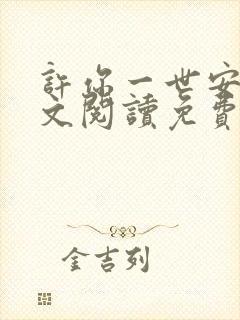 許你一世安
文閱讀免費
金吉列